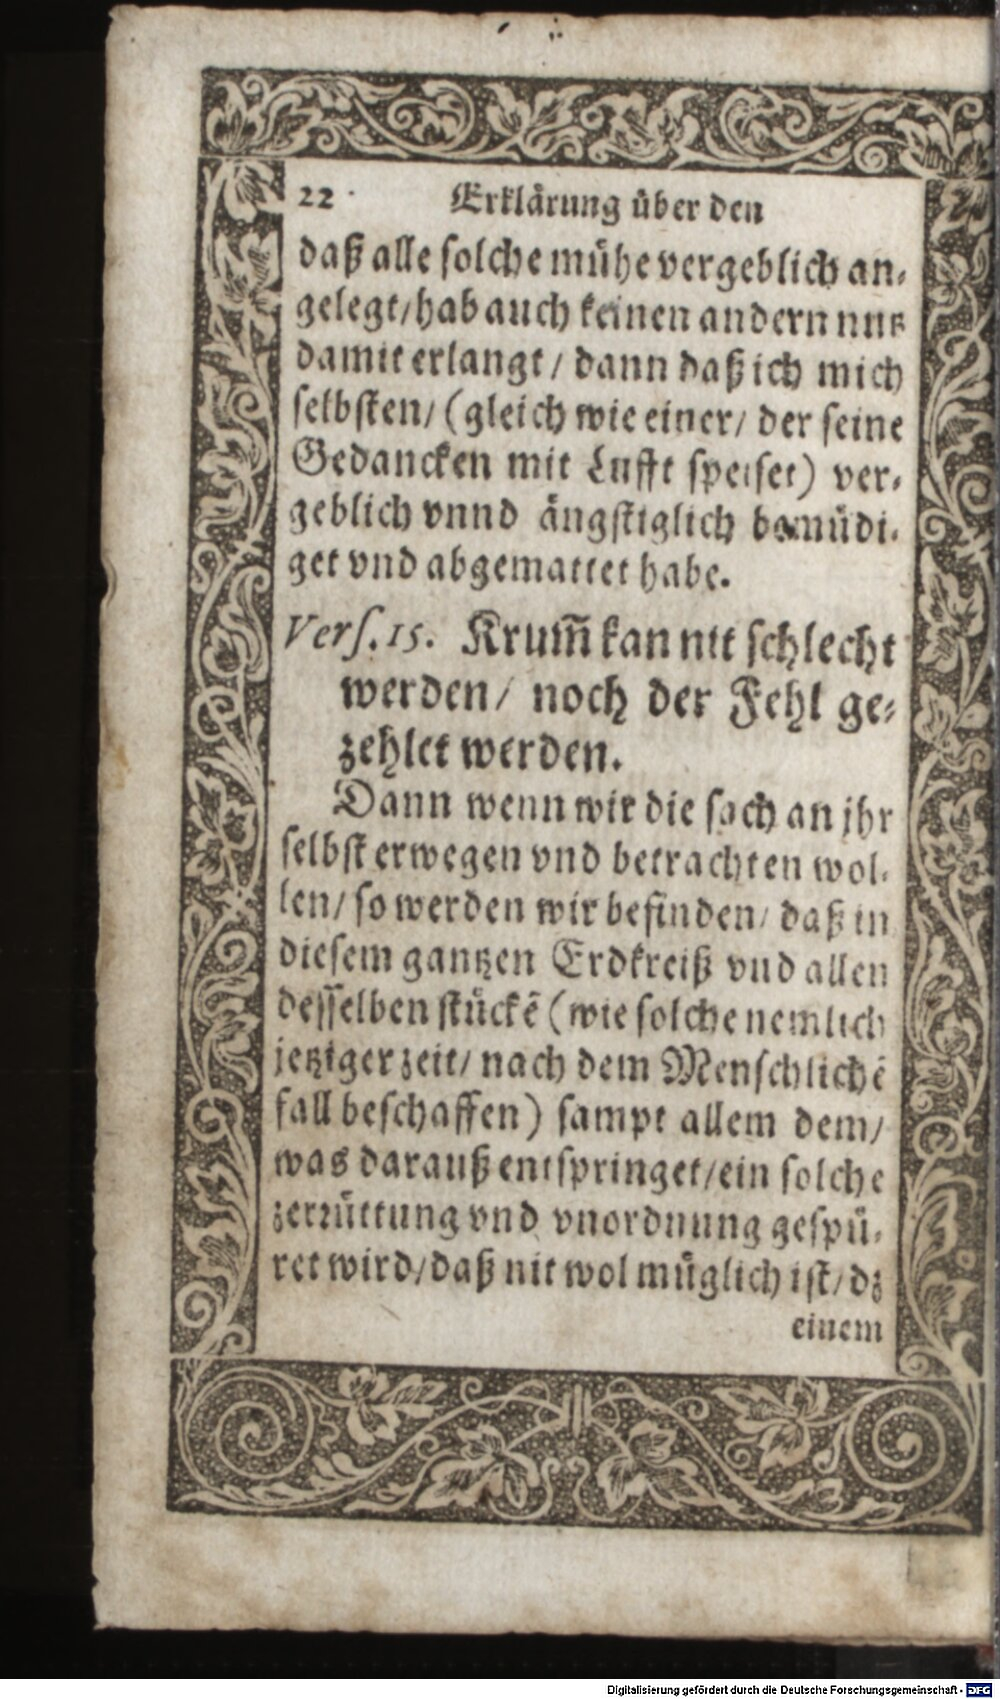 22 Erklärung über den
daß alle solche mühe vergeblich an-
gelegt/hab auch keinen andern nutz
damit erlangt/ dann daß ich mich
selbsten/ (gleich wie einer/ der seine
Gedancken mit Lufft speiset) ver-
geblich vnnd ängstiglich bemüdi-
get vnd abgemattet habe.
Vers. 15. Krum̃ kan nit schlecht
werden/ noch der Fehl ge-
zehlet werden.
Dann wenn wir die sach an jhr
selbst erwegen vnd betrachten wol-
len/ so werden wir befinden/ daß in
diesem gantzen Erdkreiß vnd allen
desselben stückẽ (wie solche nemlich
jetziger zeit/ nach dem Menschlichẽ
fall beschaffen) sampt allem dem/
was darauß entspringet/ein solche
zerrüttung vnd vnordnung gespü-
ret wird/daß nit wol müglich ist/ dz
einem
Digitalisierung gefördert durch die Deutsche Forschungsgemeinschaft - DFG